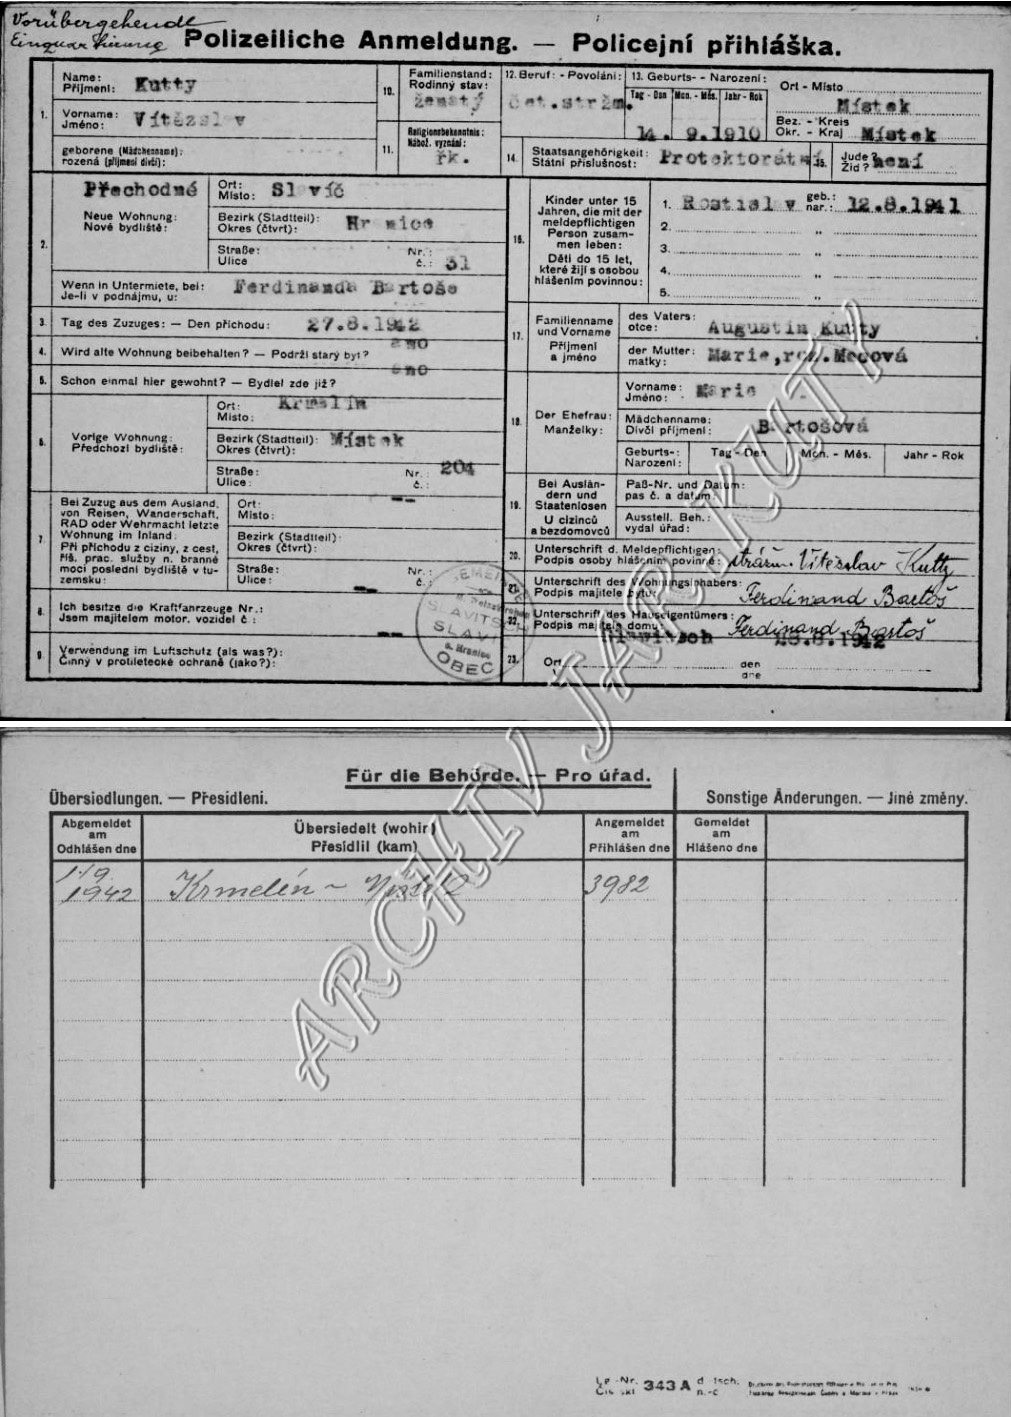 Vorübergehende
Einquartierung
Polizeiliche Anmeldung. — Policejní přihláška.
Name:
Příjmení: Kutty
1. Vorname:
Jméno: Vítězslav
geborene (Mädchenname):
rozená (příjmení dívčí):
10. Familienstand:
Rodinný stav:
ženatý
11. Religionsbekenntnis:
Nábož. vyznání:
řk.
12. Beruf: - Povolání:
čet.stržm.
13. Geburts- - Narození:
Tag - Den Mon. - Měs. Jahr - Rok
14. 9. 1910
Ort - Místo
Místek
Bez. - Kreis
Okr. - Kraj Místek
14. Staatsangehörigkeit:
Státní příslušnost: Protektorátní
15. Jude?
Žid? není
2. Přechodné
Neue Wohnung:
Nové bydliště:
Ort:
Místo: Slavíč
Bezirk (Stadtteil):
Okres (čtvrť): Hranice
Straße:
Ulice
Nr.:
č.: 31
Wenn in Untermiete, bei:
Je-li v podnájmu, u: Ferdinanda Bartoše
3. Tag des Zuzuges: — Den příchodu: 27.8.1942
4. Wird alte Wohnung beibehalten? — Podrží starý byt? ano
5. Schon einmal hier gewohnt? — Bydlel zde již? ano
6. Vorige Wohnung:
Předchozí bydliště:
Ort:
Místo: Krmelín
Bezirk (Stadtteil):
Okres (čtvrť): Místek
Straße:
Ulice:
Nr.:
č.: 204
7. Bei Zuzug aus dem Ausland,
von Reisen, Wanderschaft,
RAD oder Wehrmacht letzte
Wohnung im Inland:
Při příchodu z ciziny, z cest,
říš. prac. služby n. branné
moci poslední bydliště v tu-
zemsku:
Ort:
Místo: --
Bezirk (Stadtteil):
Okres (čtvrť):
Straße:
Ulice:
Nr.:
č.:
--
8. Ich besitze die Kraftfahrzeuge Nr.:
Jsem majitelem motor. vozidel č.:
--
9. Verwendung im Luftschutz (als was?):
Činný v protiletecké ochraně (jako?):
16. Kinder unter 15
Jahren, die mit der
meldepflichtigen
Person zusam-
men leben:
Děti do 15 let,
které žijí s osobou
hlášením povinnou:
1. Rostislav geb.:
nar.: 12.8.1941
2. „
3. „
4. „
5. „
17. Familienname
und Vorname
Příjmení
a jméno
des Vaters:
otce: Augustin Kutty
der Mutter:
matky: Marie, roz. Mecová
18. Der Ehefrau:
Manželky:
Vorname:
Jméno: Marie
Mädchenname:
Dívčí příjmení: Bartošová
Geburts-:
Narození: Tag - Den Mon. - Měs. Jahr - Rok
19. Bei Auslän-
dern und
Staatenlosen
U cizinců
a bezdomovců
Paß-Nr. und Datum:
pas č. a datum:
Ausstell. Beh.:
vydal úřad:
20. Unterschrift d. Meldepflichtigen:
Podpis osoby hlášením povinné: strážm. Vítězslav Kutty
21. Unterschrift des Wohnungsinhabers:
Podpis majitele bytu: Ferdinand Bartoš
22. Unterschrift des Hauseigentümers:
Podpis majitele domu: Ferdinand Bartoš
Slawitsch 28.8.1942
23. Ort den
dne
GEMEINDE
SLAWITSCH
SLAVÍČ
OBEC
b. Hranice
Für die Behörde. — Pro úřad.
Übersiedlungen. — Přesídlení.
Sonstige Änderungen. — Jiné změny.
Abgemeldet
am
Odhlášen dne
Übersiedelt (wohin)
Přesídlil (kam)
Angemeldet
am
Přihlášen dne
Gemeldet
am
Hlášeno dne
1/9.
1942 Krmelín - Místek 3982
343 A
ARCHIV JAR. KUTÝ